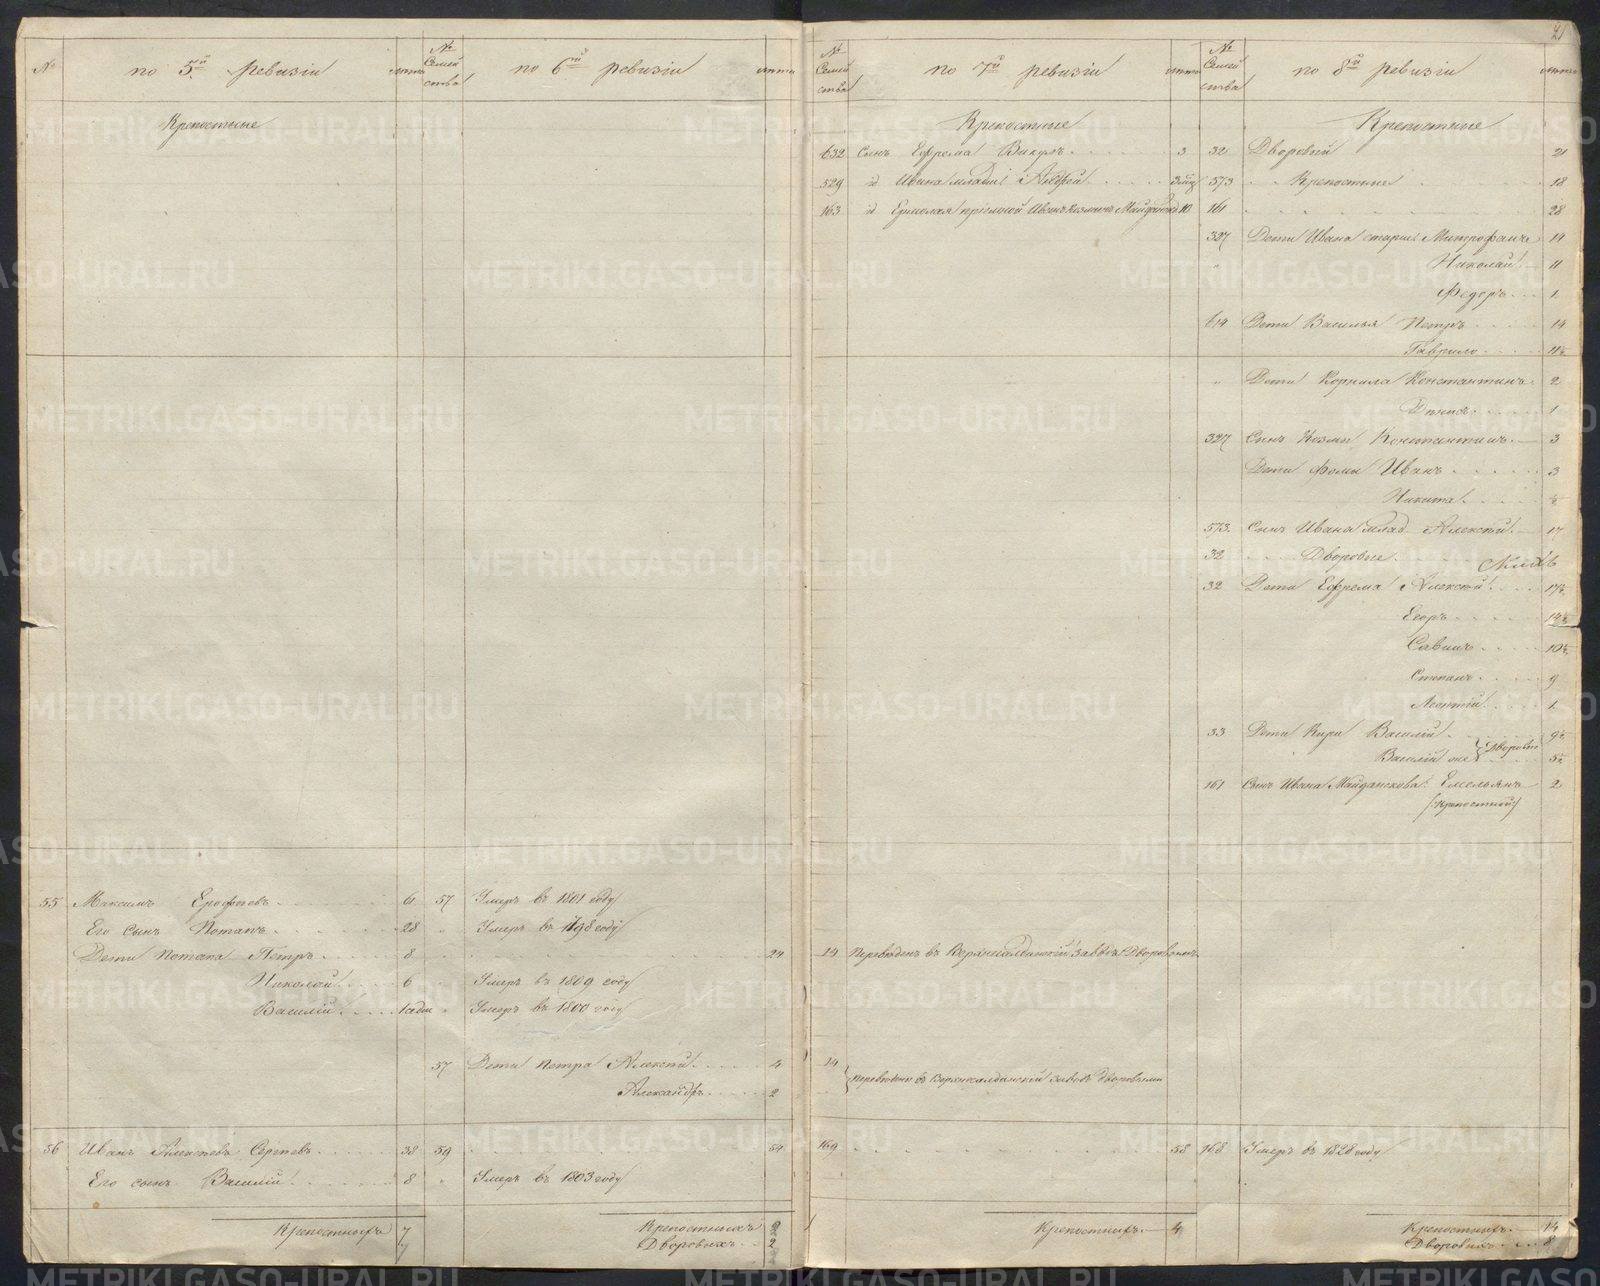 21
№ по 5й ревизiи лета № Семейства по 6й ревизiи лета
№ Семейства по 7й ревизiи лета № Семейства по 8й ревизiи лета
Крепостные
Крепостные
632 Сынъ Ефрема Викулъ 3
529 id Ивана младш: Андрей
163 id Ермолая 10
Крепостные
32 Дворовый 21
573 Крепостные 18
161 28
327 Дети Ивана старш: Митрофанъ 19
" Николай 11
Федоръ 1
614 Дети Василья Петръ 14
Гаврило 11½
" Дети Корнила Константинъ 2
1
327 Сынъ Козмы Константинъ 3
Дети Фомы Иванъ 3
Никита ½
573 Сынъ Ивана млад. Алексей 17
32 Дворовые
32 Дети Ефрема Алексей 17½
Егоръ 14½
Савинъ 10½
Степанъ 9
Леонтiй 1
33 Дети Василiй 9½
Василiй же Дворовые 5½
161 Сынъ Ивана Майданскова Емельянъ 2
(Крепостной)
55 Максимъ Ерофеевъ 61 57 Умеръ въ 1801 году
Его сынъ Потапъ 28 " Умеръ въ 1798 году
Дети Потапа Петръ 8 24 24 Переведенъ въ Верхнесалдинскiй заводъ Дворовымъ
Николай 6 " Умеръ въ 1809 году
Василiй 1 " Умеръ въ 1800 году
57 Дети Петра Алексей 4 24
Александръ 2 Переведены въ Верхнесалдинскiй заводъ дворовыми
56 Иванъ Алексеевъ Сергеевъ 38 59 54 169 58 168 Умеръ въ 1828 году
Его сынъ Василiй 8 " Умеръ въ 1803 году
Крепостныхъ 7
Крепостныхъ 2
Дворовыхъ 2
Крепостныхъ 4
Крепостныхъ 14
Дворовыхъ 8
METRIKI.GASO-URAL.RU